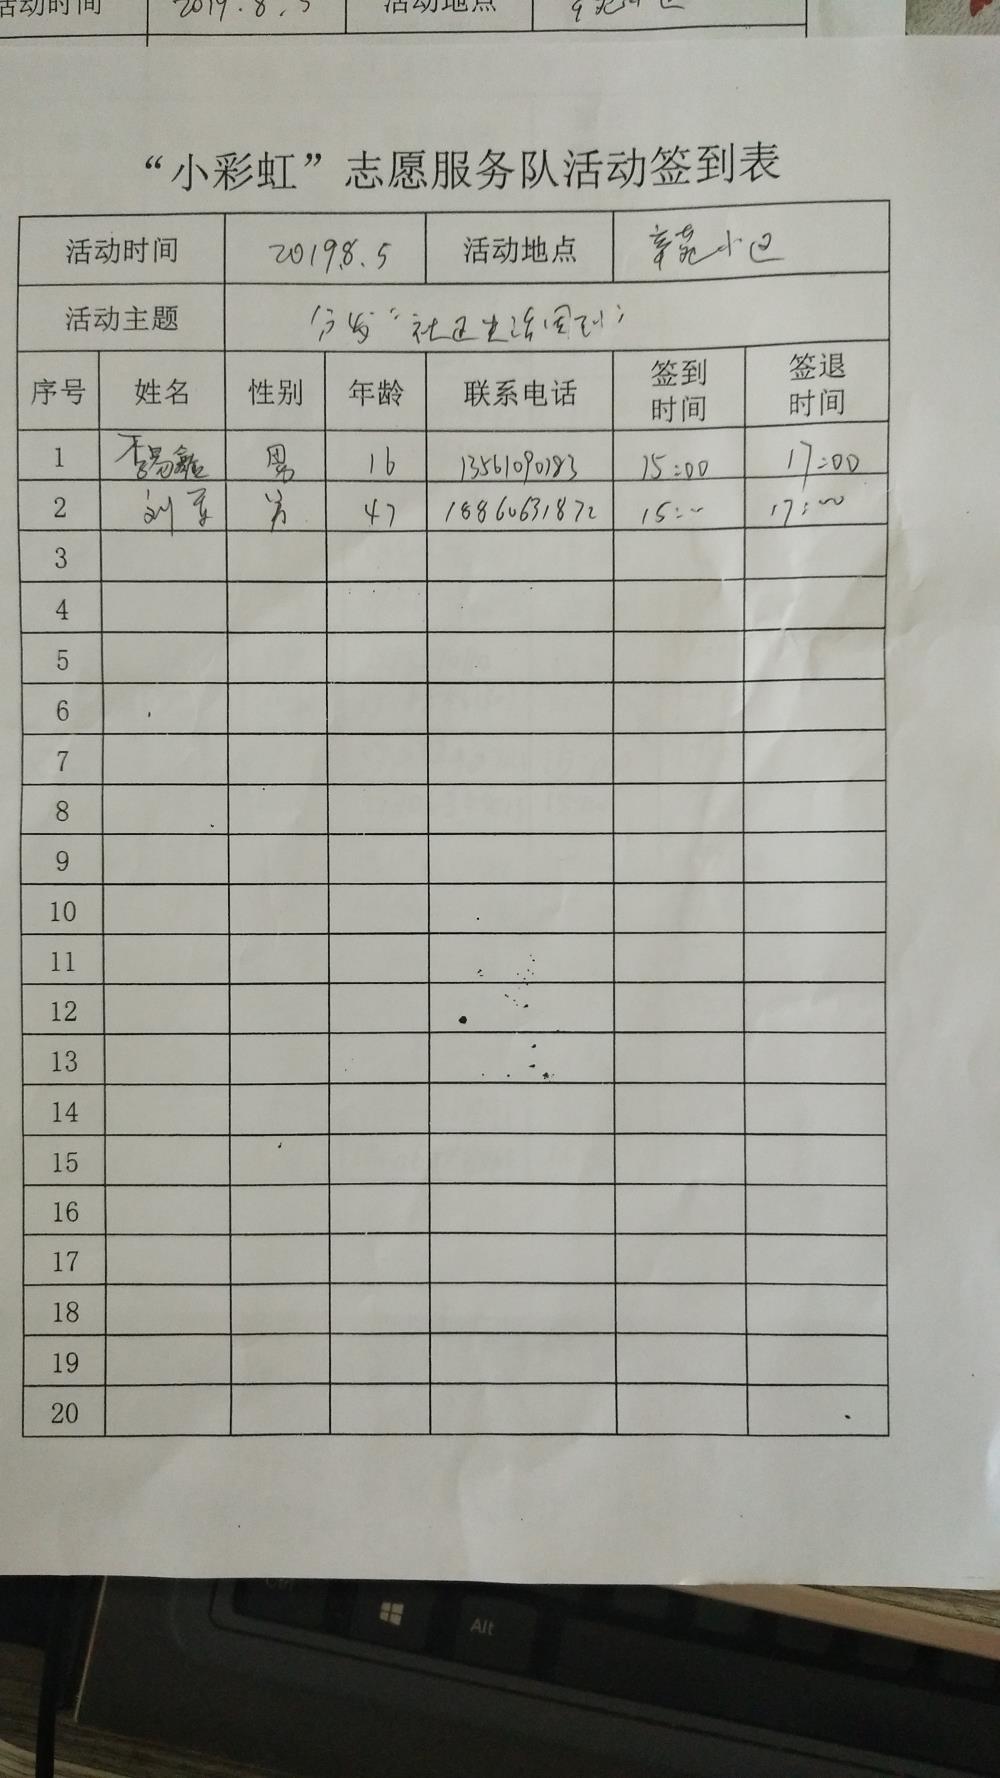 活动时间 2019.8.5 活动地点
“小彩虹”志愿服务队活动签到表
活动时间 2019.8.5 活动地点 辛苑小区
活动主题 分发“社区生活周刊”
序号 姓名 性别 年龄 联系电话 签到时间 签退时间
1 李易鑫 男 16 13561090183 15:00 17:00
2 刘军 男 47 18860631872 15:00 17:00
3
4
5
6
7
8
9
10
11
12
13
14
15
16
17
18
19
20
Ctrl Alt